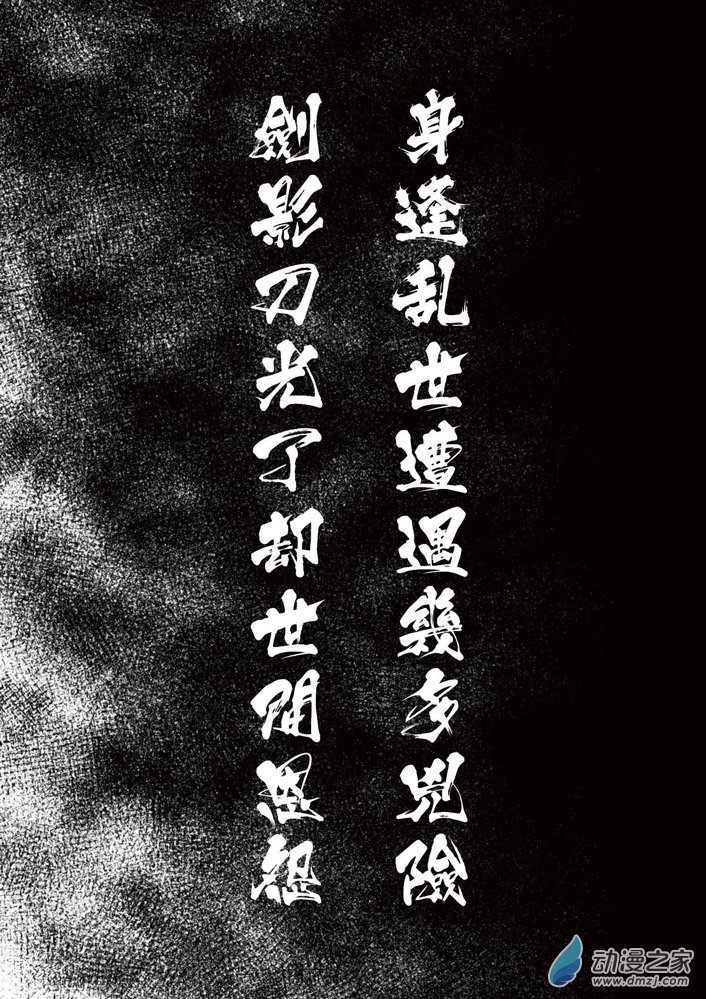 身逢乱世遭遇幾多兇險
劍影刀光了却世間恩怨
动漫之家
www.dmzj.com